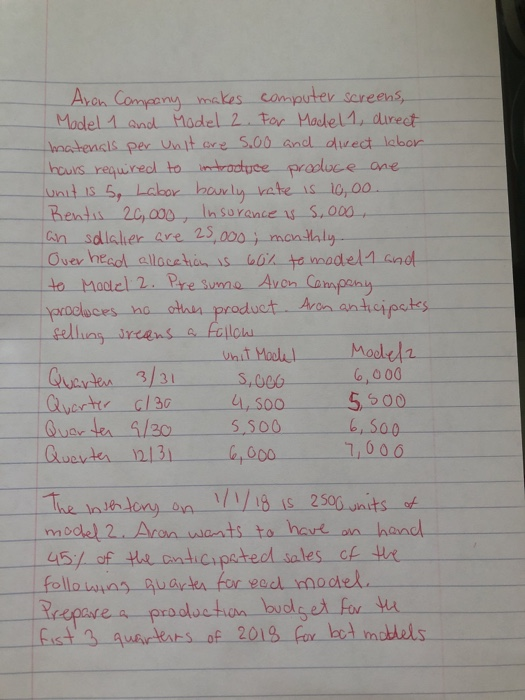 Aron Company makes computer screens,
Model 1 and Model 2. For Model 1, direct
materials per unit are 5.00 and direct labor
hours required to introduce produce one
unit is 5, Labor hourly rate is 10,00.
Rent is 20,000, Insurance is 5,000,
an sallalier are 25,000; monthly
Over head allocation is 60% to model 1 and
to Model 2. Presume Avon Company
produces no other product. Aron anticipates
selling sreens a follow
Unit Model Model 2
Quarten 3/31 5,000 6,000
Quarter 6/30 4,500 5,500
Quarter 9/30 5,500 6,500
Quarter 12/31 6,000 7,000
The inventory on 1/1/18 is 2500 units of
model 2. Aron wants to have on hand
45% of the anticipated sales of the
following quarter for each model.
Prepare a production budget for the
fist 3 quarters of 2018 for bot models